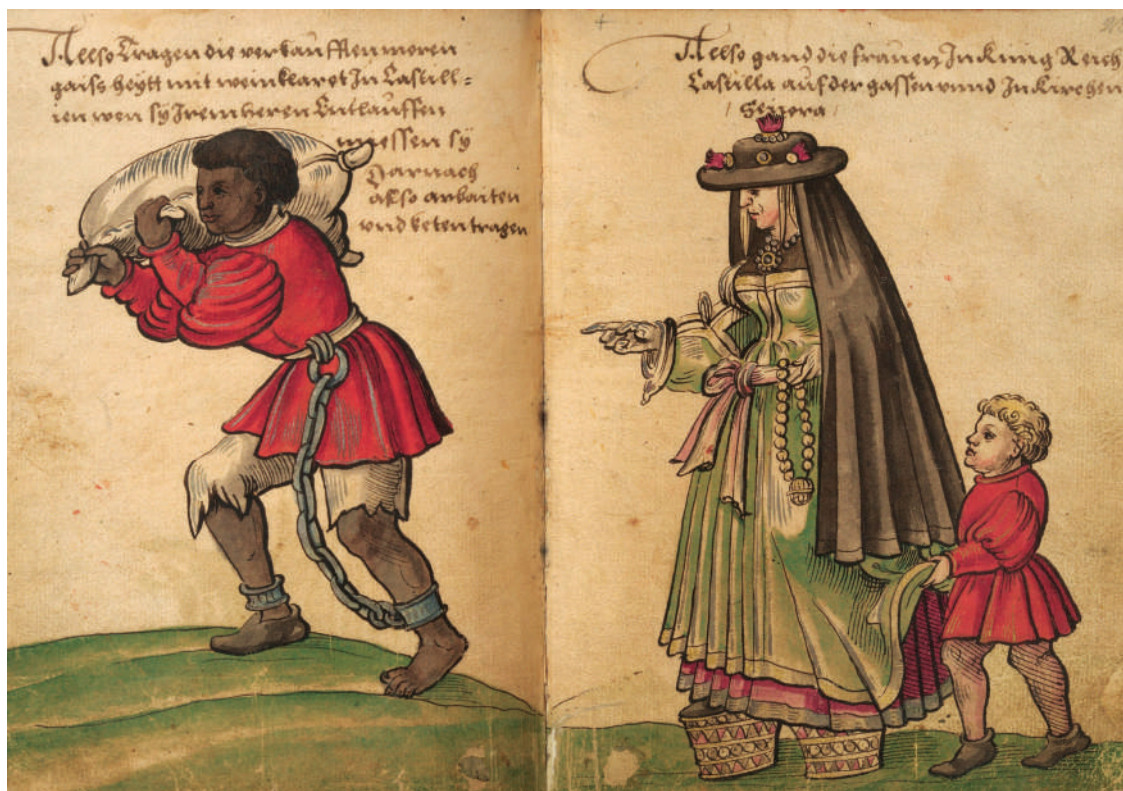 Allso Tragen die verkaufften moren
gaiss heytt mit wein klarot In Castill=
ien wen sy Irem heren Entlauffen
miessen sy
Darnach
also arbaiten
und keten tragen
Allso gand die frauen In Kinig Reich
Castilla auf der gassen unnd In Kirchen
/ Senora /